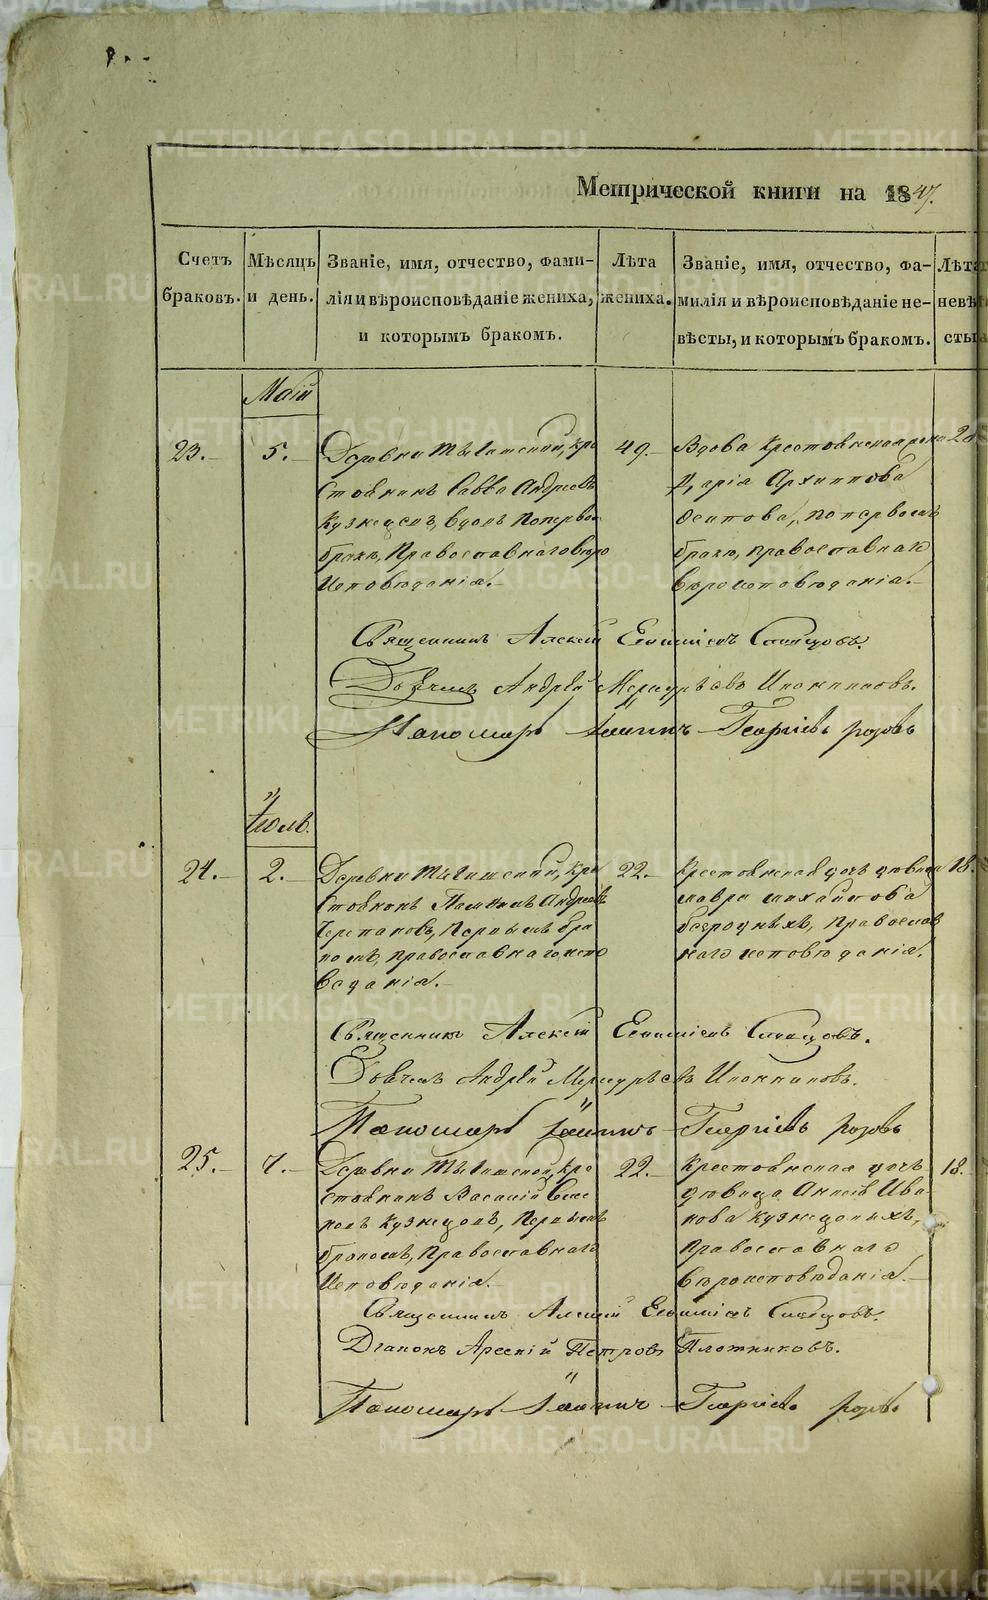 Метрической книги на 1847.
Счетъ браковъ.
Мѣсяцъ и день.
Званіе, имя, отчество, фами-
лія и вѣроисповѣданіе жениха,
и которымъ бракомъ.
Лѣта
жениха.
Званіе, имя, отчество, фа-
милія и вѣроисповѣданіе не-
вѣсты, и которымъ бракомъ.
Лѣта
невѣ
сты
Маій
23.
5.
Деревни кре
стьянинъ Савва Андреевъ
Кузнецовъ, вдовъ
бракъ, Православнаго вѣро
исповѣданія.
49.
Вдова Крестьянская
Дарія Архиппова
Осипова,
бракъ, православнаго
вѣроисповѣданія.
Священникъ Алексій
Дьячекъ Андрей Меркурьевъ
Пономарь Іоаннъ Георгіевъ Розовъ
Іюль.
24.
2.
Деревни кре
стьянинъ Андреевъ
Черепановъ, Первымъ бра
комъ, православнаго испо
веданія.
22.
Крестьянская дочь девица
Мавра Михайлова
Безродныхъ, Православ
наго исповѣданія.
18.
Священникъ Алексій
Дьячекъ Андрей Меркурьевъ
Пономарь Іоаннъ Георгіевъ Розовъ
25.
7.
Деревни кре
стьянинъ Василій
Кузнецовъ, Первымъ
бракомъ, Православнаго
исповѣданія.
22.
Крестьянская дочь
дѣвица Ива-
нова Кузнецовыхъ,
Православнаго
вѣроисповѣданія.
18.
Священникъ Алексій
Діаконъ Арсеній Петровъ Плотниковъ.
Пономарь Іоаннъ Георгіевъ Розовъ
METRIKI.GASO-URAL.RU